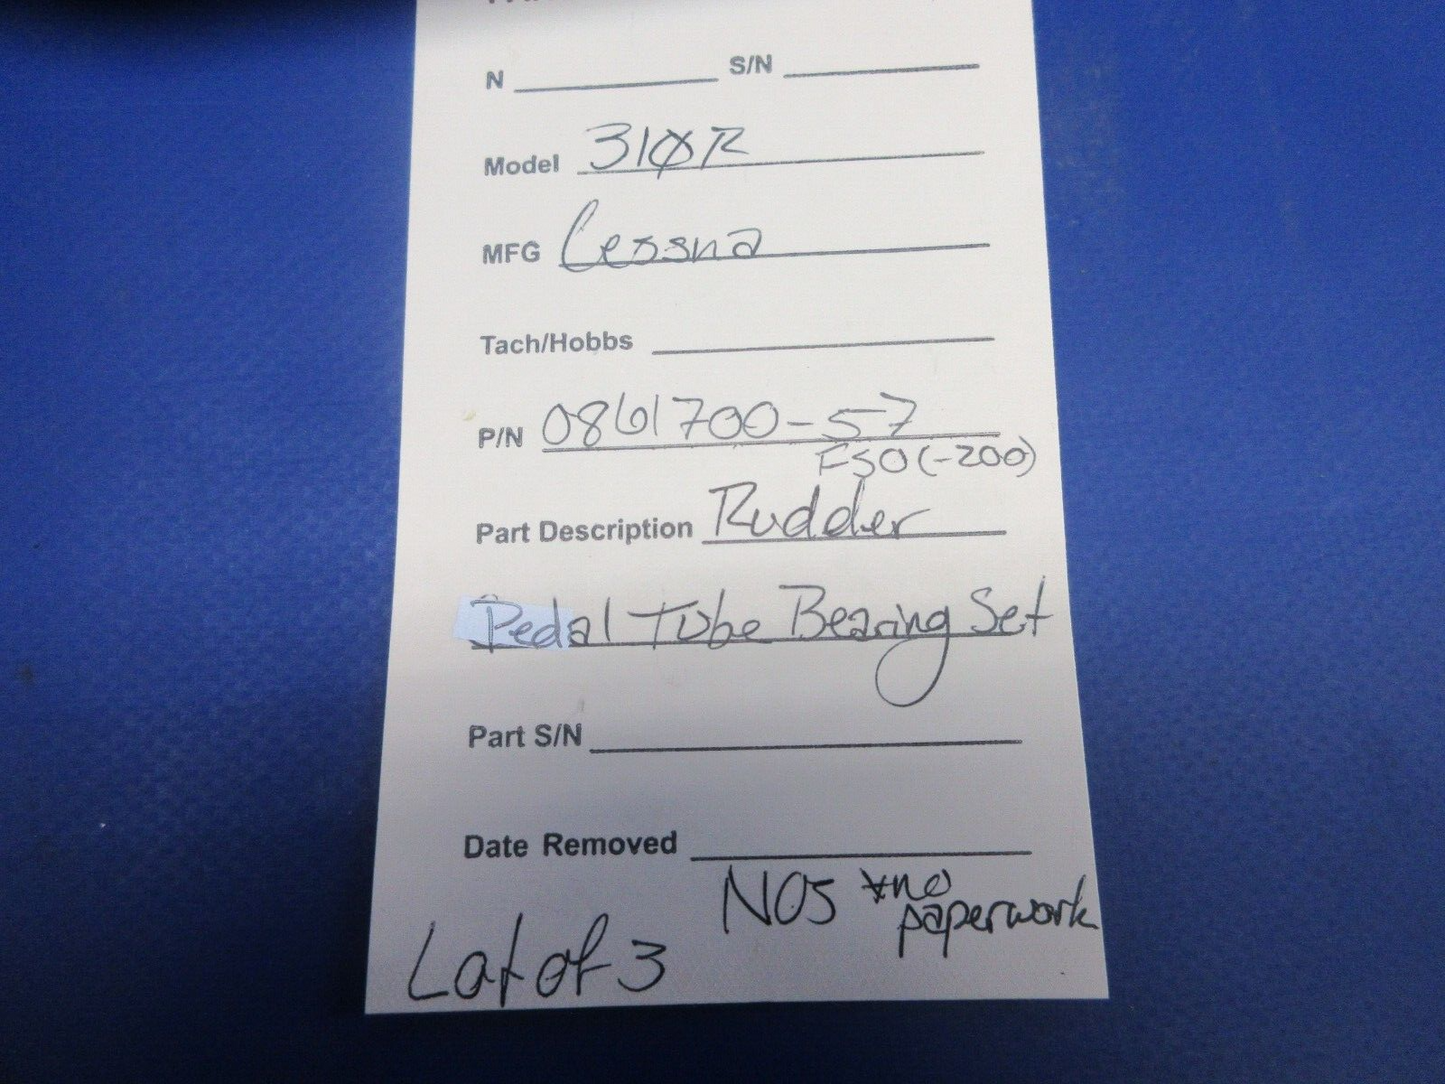 N S/N
Model 310R
MFG Cessna
Tach/Hobbs
P/N 0861700-57
FSO (-200)
Part Description Rudder
Pedal Tube Bearing Set
Part S/N
Date Removed
NOS *no
paperwork
Lot of 3